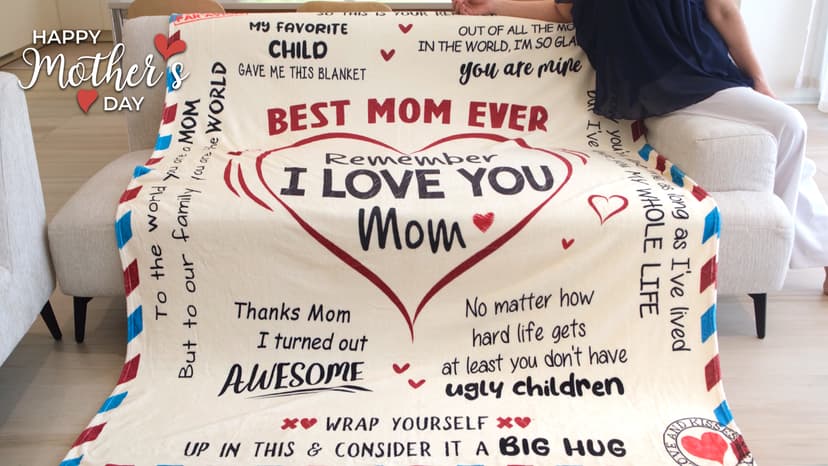 HAPPY
Mother's
DAY
PAR AV
SO THIS IS YOUR
MY FAVORITE
CHILD
GAVE ME THIS BLANKET
OUT OF ALL THE MO
IN THE WORLD, I'M SO GLA
you are mine
BEST MOM EVER
Remember
I LOVE YOU
Mom
To the world you are a MOM
But to our family you are the WORLD
as long as I've lived
I've MY WHOLE LIFE
Thanks Mom
I turned out
AWESOME
No matter how
hard life gets
at least you don't have
ugly children
WRAP YOURSELF
UP IN THIS & CONSIDER IT A BIG HUG
LOVE AND KISSES